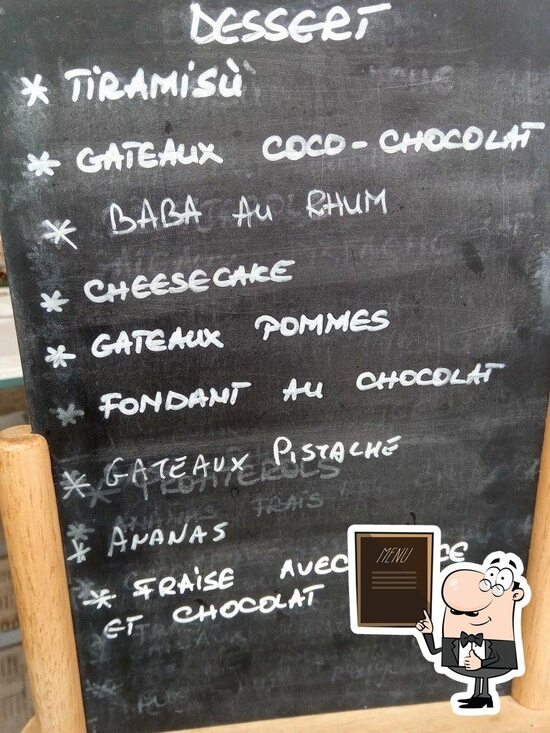 DESSERT
* TIRAMISÙ
* GATEAUX COCO-CHOCOLAT
* BABA AU RHUM
* CHEESECAKE
* GATEAUX POMMES
* FONDANT AU CHOCOLAT
* GATEAUX PISTACHE
PROFITEROLS
* ANANAS FRAIS
* ANANAS
* FRAISE AVEC
ET CHOCOLAT
MENU